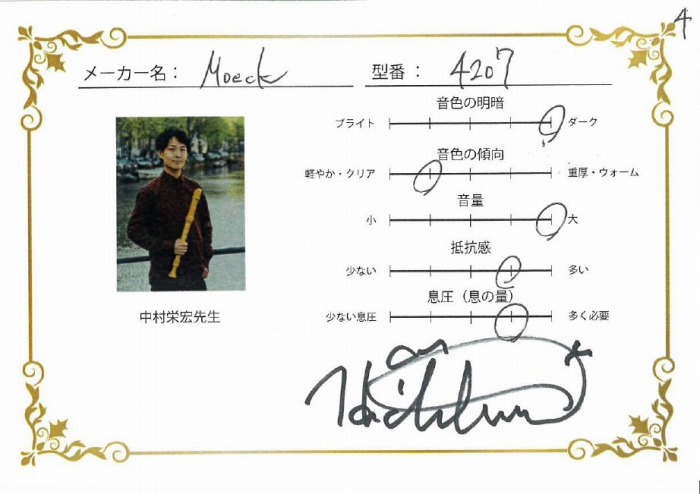 4
メーカー名： Moeck 型番： 4207
音色の明暗
ブライト ダーク
音色の傾向
軽やか・クリア 重厚・ウォーム
音量
小 大
抵抗感
少ない 多い
息圧（息の量）
少ない息圧 多く必要
中村栄宏先生